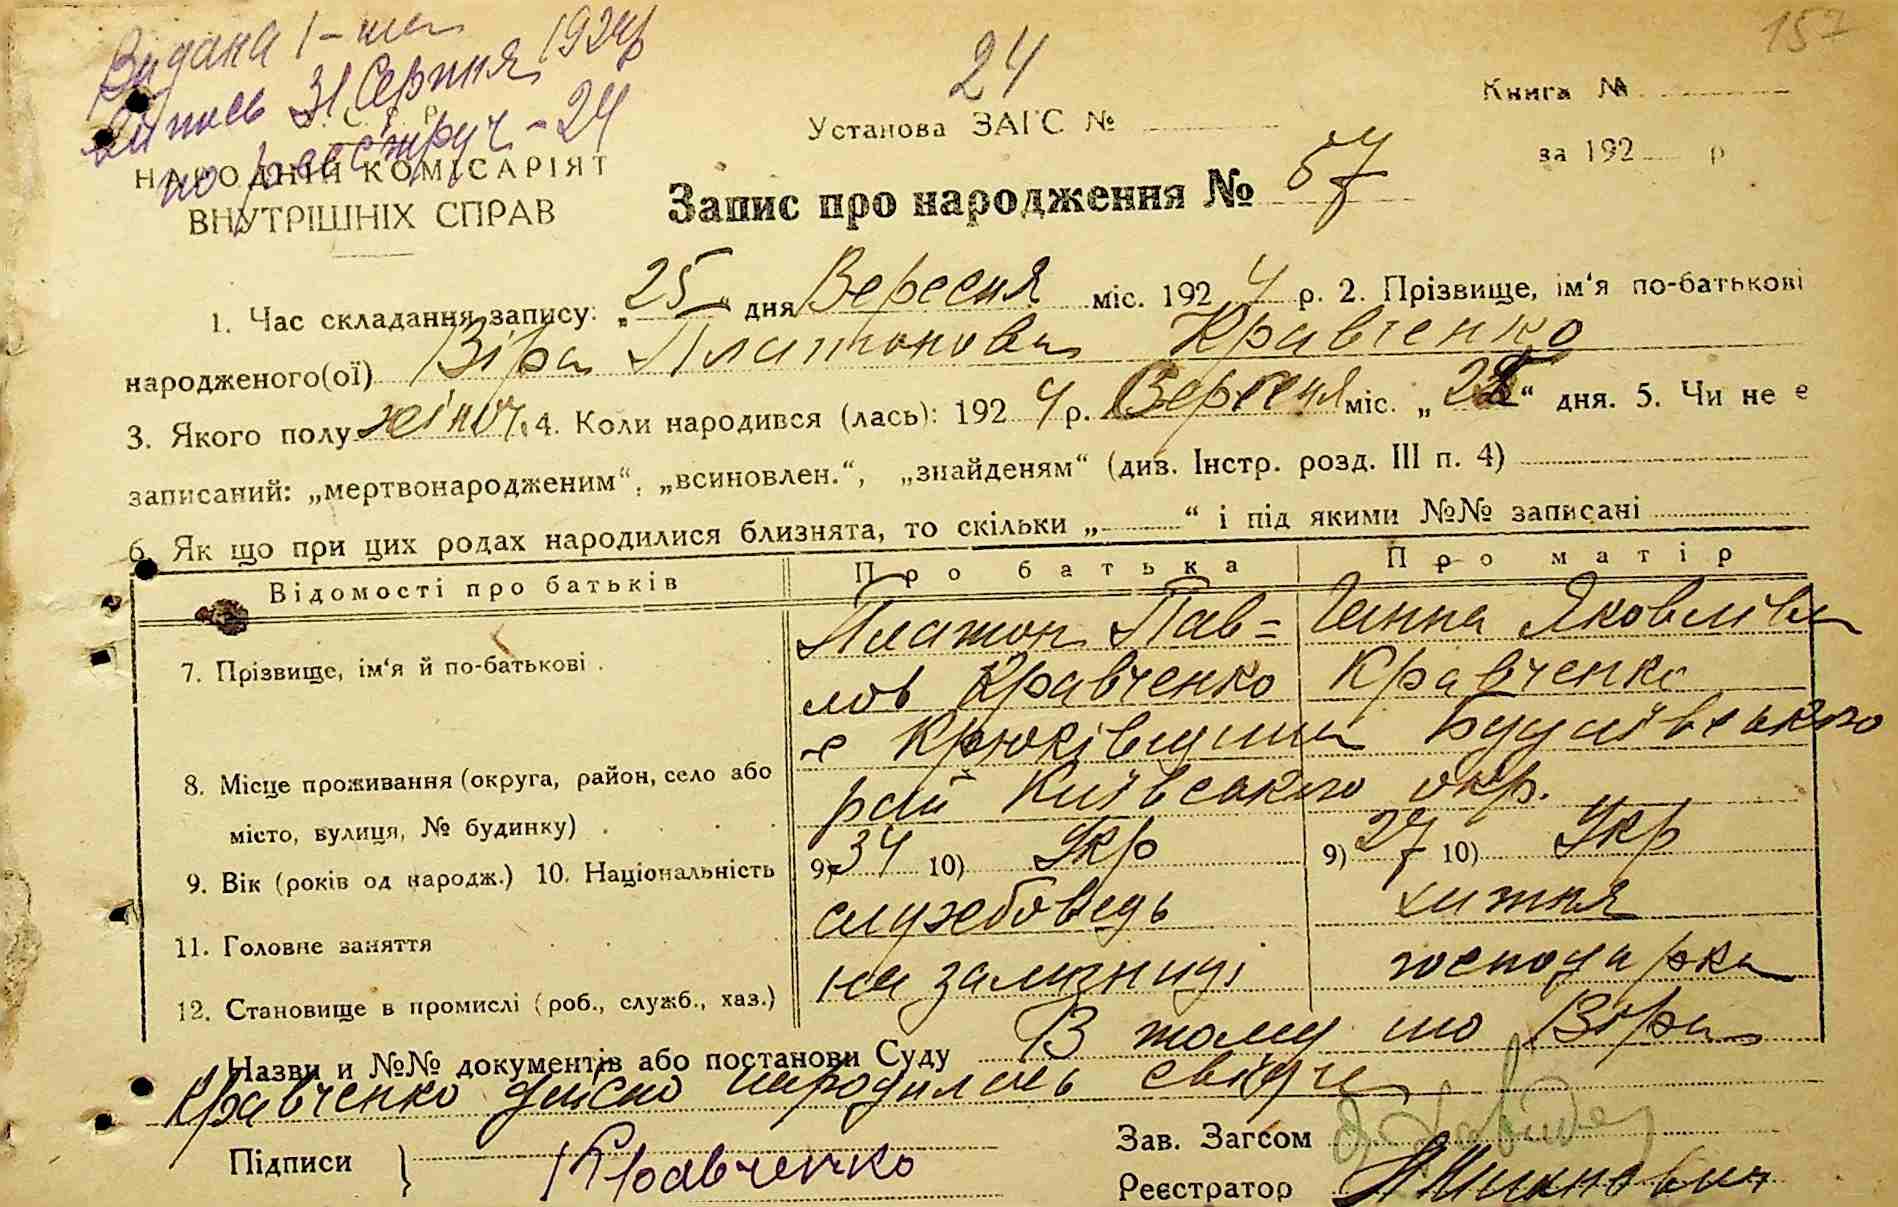 157
Видана 1-ша
випись 31 Серпня 1924р
по реєстру ч - 24
У.С.Р.Р.
НАРОДНІЙ КОМІСАРІЯТ
ВНУТРІШНІХ СПРАВ
24
Установа ЗАГС №
Книга №
за 192 р
Запис про народження № 57
1. Час складання запису: „25" дня Вересня міс. 1924 р. 2. Прізвище, ім'я по-батькові
народженого(ої) Віра Платонова Кравченко
3. Якого полу жіноч. 4. Коли народився (лась): 1924 р. Вересня міс. „ “ дня. 5. Чи не є
записаний: „мертвонародженим“, „всиновлен.“, „знайденям“ (див. Інстр. розд. III п. 4)
6. Як що при цих родах народилися близнята, то скільки „ “ і під якими №№ записані
Відомості про батьків Про батька Про матір
7. Прізвище, ім'я й по-батькові . Платон Пав= Ганна Яковлівн
лов Кравченко Кравченко
с Крюківщина Будаївського
8. Місце проживання (округа, район, село або
рай Київського окр.
місто, вулиця, № будинку)
9. Вік (років од народж.) 10. Національність 9) 34 10) Укр 9) 27 10) Укр
11. Головне заняття службовець хатня
12. Становище в промислі (роб., служб., хаз.) на залізниці господарка
Назви и №№ документів або постанови Суду В тому що Віра
Кравченко дійсно народилась свідче
Підписи } Кравченко
Зав. Загсом
Реєстратор